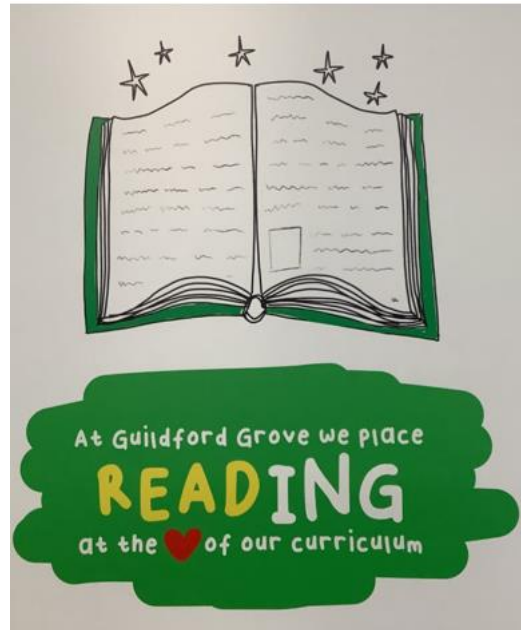 At Guildford Grove we place
READING
at the ❤ of our curriculum